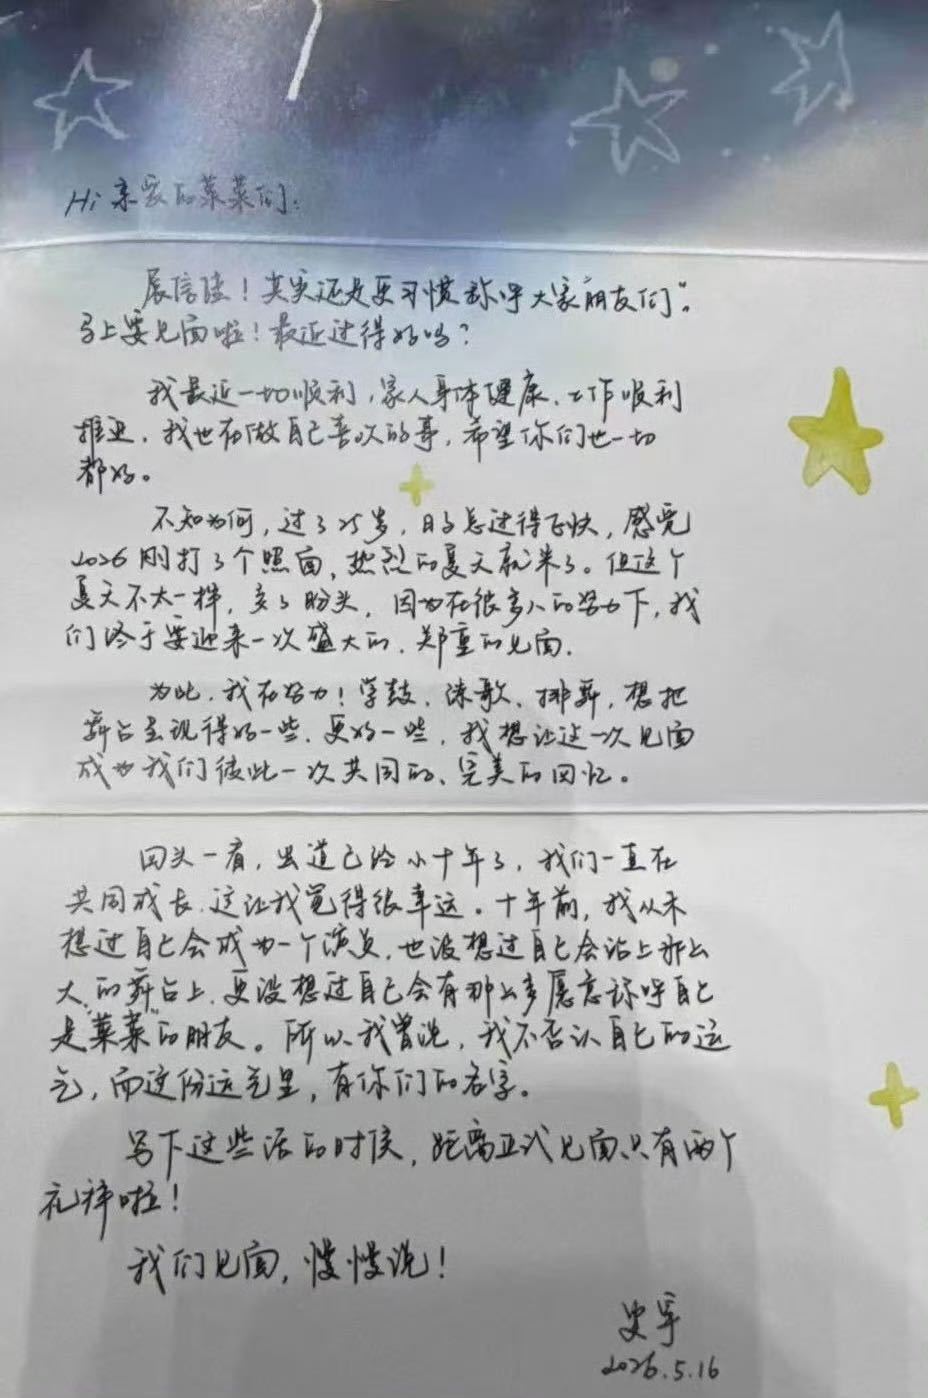 Hi 亲爱的菜菜们:
展信佳！其实还是更习惯称呼大家朋友们"。
马上要见面啦！最近过得好吗？
我最近一切顺利，家人身体健康、工作顺利
推进，我也在做自己喜欢的事，希望你们也一切
都好。
不知为何，过了25岁，日子总过得飞快，感觉
2026刚打了个照面，热烈的夏天就来了。但这个
夏天不太一样，多了盼头，因为在很多人的努力下，我
们终于要迎来一次盛大的、郑重的见面.
为此，我在努力！学鼓、练歌、排舞，想把
舞台呈现得好一些、更好一些，我想让这一次见面
成为我们彼此一次共同的、完美的回忆。
回头一看，出道已经小十年了，我们一直在
共同成长，这让我觉得很幸运。十年前，我从未
想过自己会成为一个演员，也没想过自己会站上那么
大的舞台上，更没想过自己会有那么多愿意称呼自己
是"菜菜"的朋友。所以我曾说，我不否认自己的运
气，而这份运气里，有你们的名字。
写下这些话的时候，距离正式见面只有两个
礼拜啦！
我们见面，慢慢说！
史宇
2026.5.16